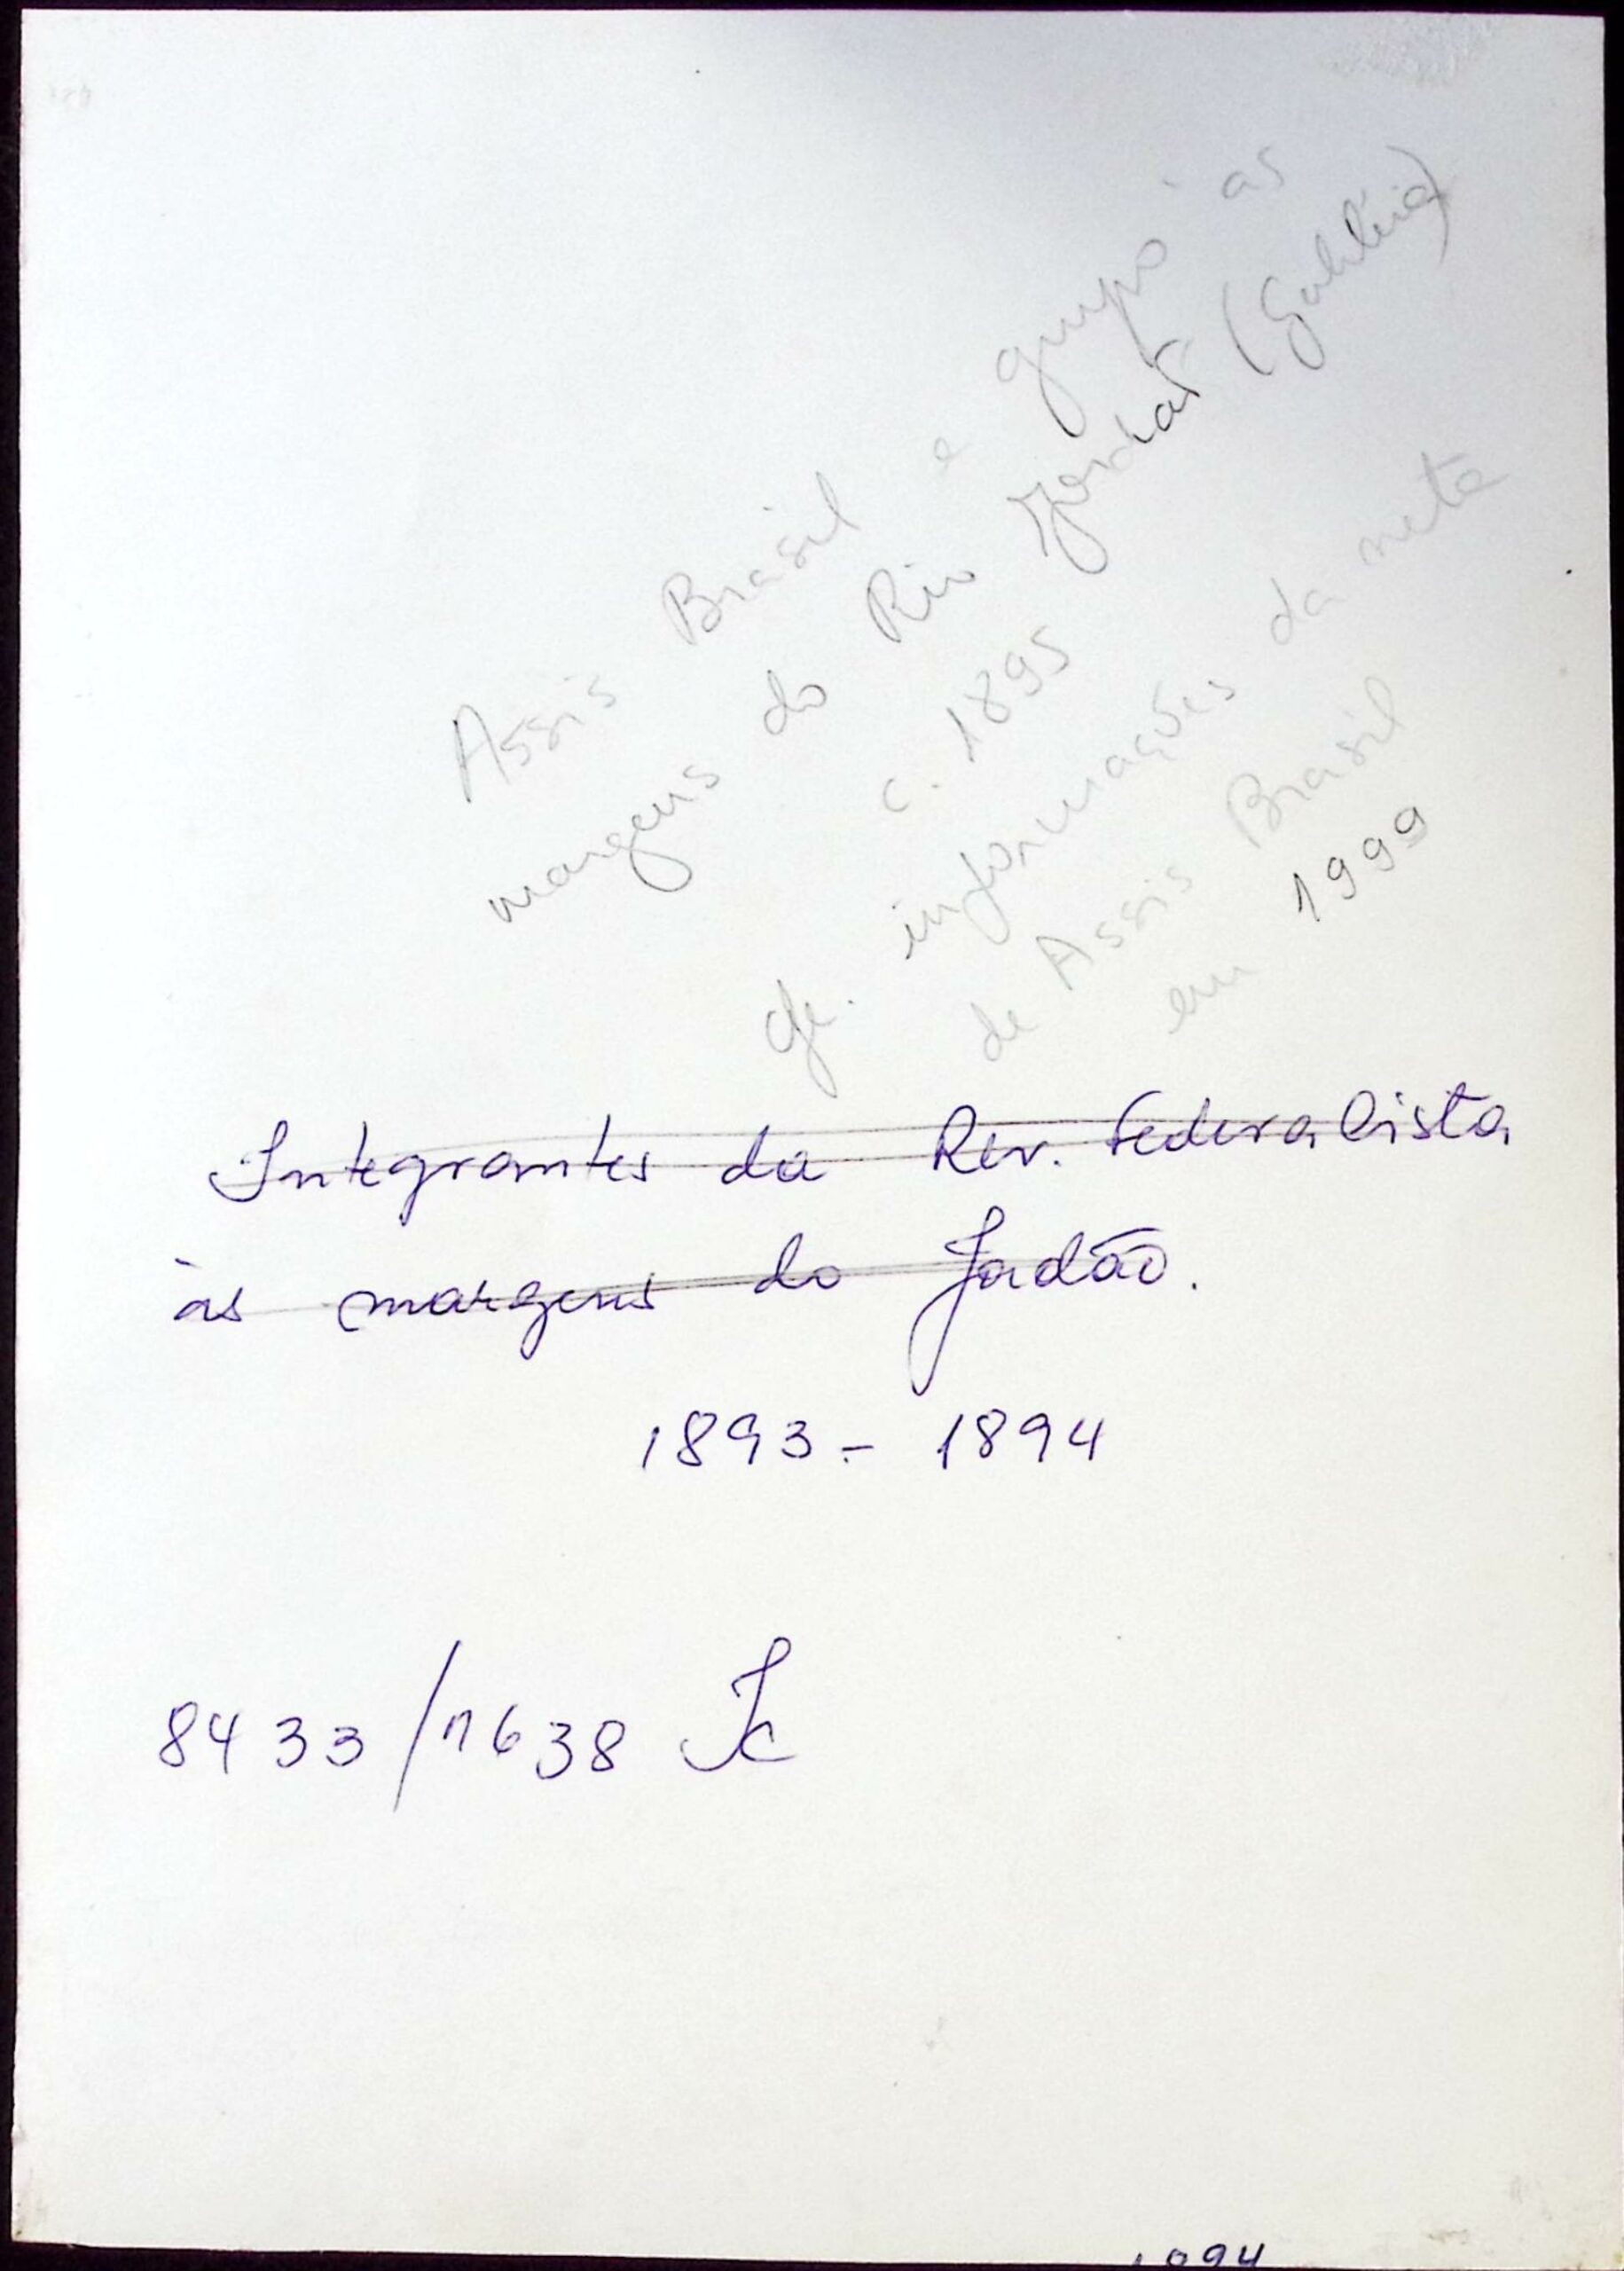 Assis Brasil e grupo às
margens do Rio Jordat (Galiléia)
c. 1895
cfe. informações da neta
de Assis Brasil
em 1999
Integrantes da Rev. Federalista
às margens do Jordão.
1893 - 1894
8433/1638 Jc